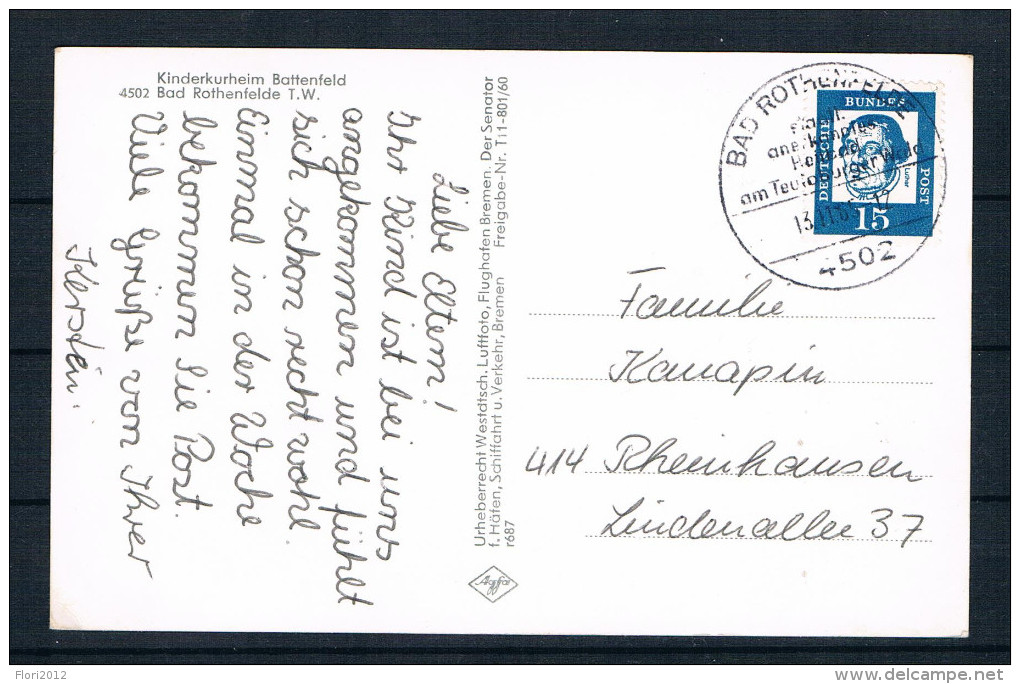 Kinderkurheim Battenfeld
4502 Bad Rothenfelde T.W.
Liebe Eltern!
Ihr Kind ist bei uns
angekommen und fühlt
sich schon recht wohl.
Einmal in der Woche
bekommen Sie Post.
Viele Grüße von Ihrer
Urheberrecht Westdtsch. Luftfoto, Flughafen Bremen. Der Senator
f. Häfen, Schiffahrt u. Verkehr, Bremen Freigabe-Nr. T11-801/60
r687
Agfa
BAD ROTHENFELDE
staatl.
anerkanntes
Heilbad
am Teutoburger Wald
13.11.
12
4502
DEUTSCHE
BUNDES
POST
Luther
15
Familie
Kanapin
414 Rheinhausen
Lindenallee 37
Flori2012
delcampe.net